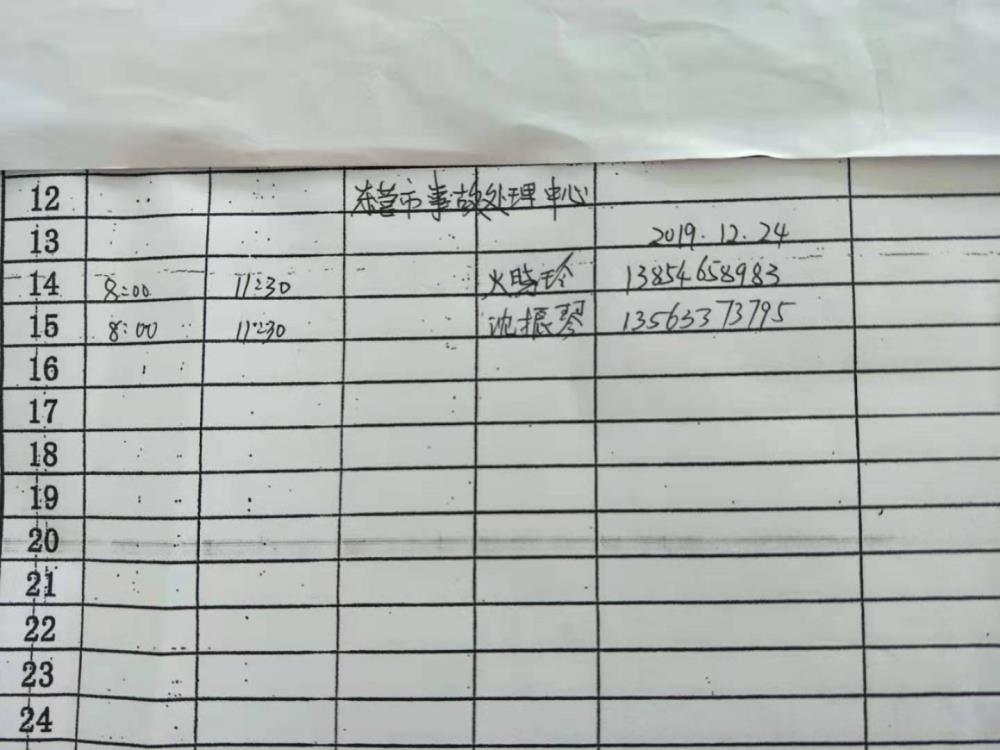 12 东营市事故处理中心
13 2019.12.24
14 8:00 11:30 火晓玲 13854658983
15 8:00 11:30 沈振琴 13563373795
16
17
18
19
20
21
22
23
24